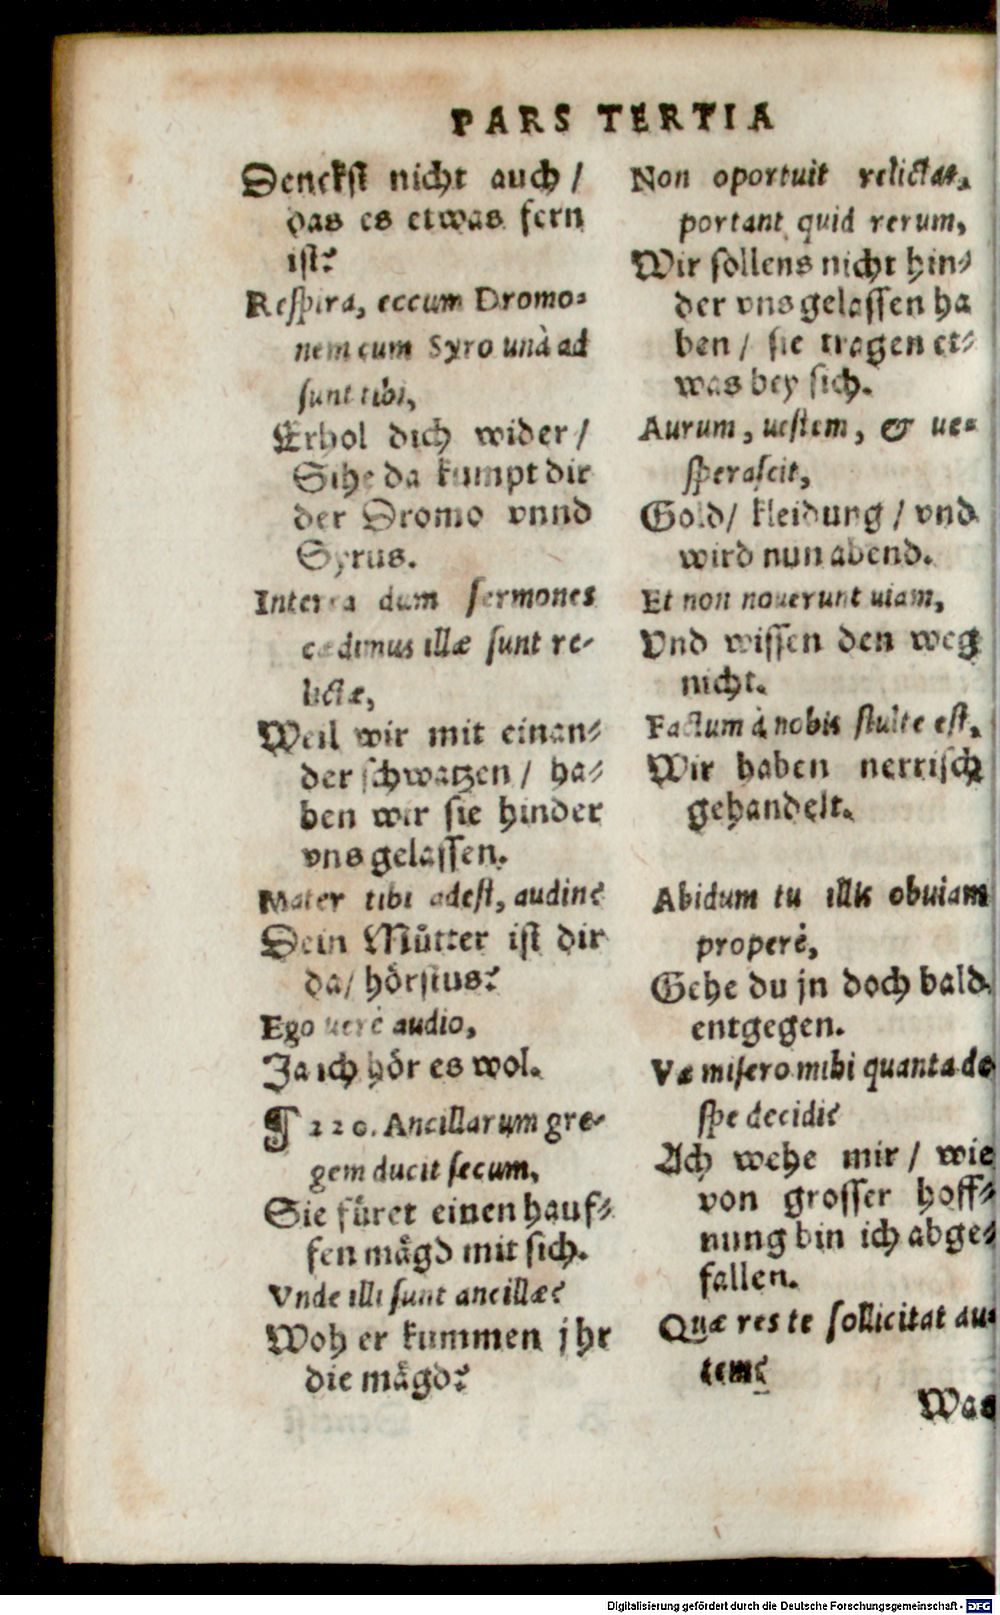 PARS TERTIA
Denckst nicht auch /
das es etwas fern
ist?
Respira, eccum Dromo-
nem cum Syro unà ad
sunt tibi,
Erhol dich wider /
Sihe da kumpt dir
der Dromo vnnd
Syrus.
Interea dum sermones
cædimus illæ sunt re-
lictæ,
Weil wir mit einan-
der schwatzen / ha-
ben wir sie hinder
vns gelassen.
Mater tibi adest, audin?
Dein Mütter ist dir
da / hörstus?
Ego uerè audio,
Ja ich hör es wol.
¶ 220. Ancillarum gre-
gem ducit secum,
Sie füret einen hauf-
fen mägd mit sich.
Vnde illi sunt ancillæ?
Woh er kummen jhr
die mägd?
Non oportuit relictas,
portant quid rerum,
Wir sollens nicht hin-
der vns gelassen ha
ben / sie tragen et-
was bey sich.
Aurum, uestem, & ue-
sperascit,
Gold / kleidung / vnd
wird nun abend.
Et non nouerunt uiam,
Vnd wissen den weg
nicht.
Factum à nobis stulte est,
Wir haben nerrisch
gehandelt.
Abidum tu illis obuiam
properè,
Gehe du jn doch bald
entgegen.
Væ misero mihi quanta de
spe decidi?
Ach wehe mir / wie
von grosser hoff-
nung bin ich abge-
fallen.
Quæ res te sollicitat au-
tem?
Was
Digitalisierung gefördert durch die Deutsche Forschungsgemeinschaft - DFG